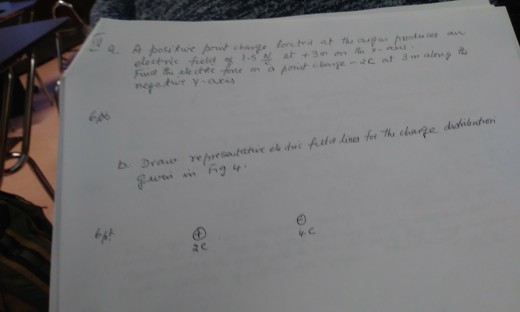 a. A positive point charge located at the origin produces an
electric field of 1.5 N/C at +3m on the x-axis.
Find the electric force on a point charge -2C at 3m along the
negative y-axis
6pts
b. Draw representative electric field lines for the charge distribution
given in Fig 4.
6pt
+
2C
4C